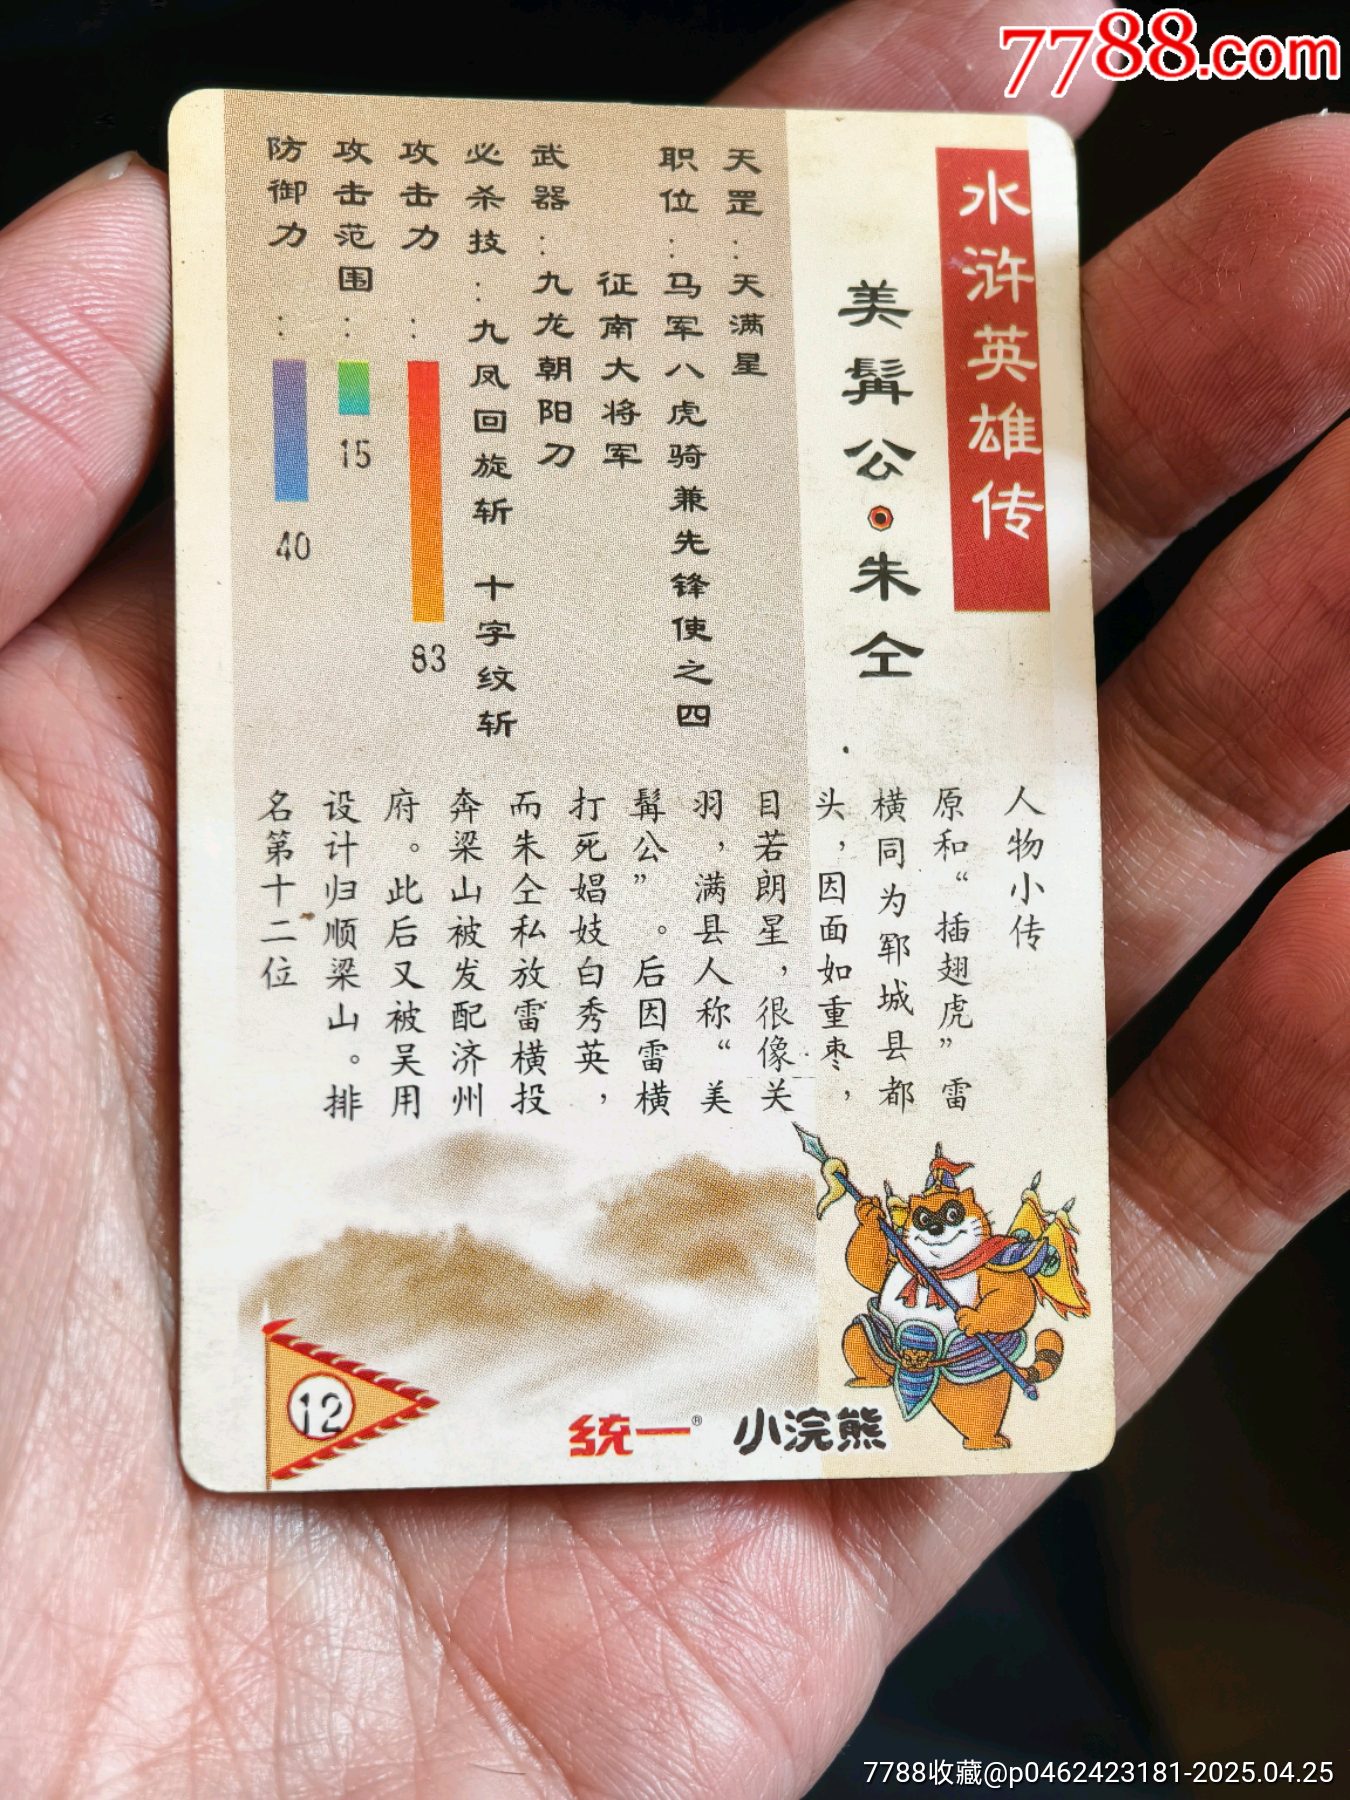 7788.com
水浒英雄传
美髯公●朱仝
天罡：天满星
职位：马军八虎骑兼先锋使之四
征南大将军
武器：九龙朝阳刀
必杀技：九凤回旋斩 十字纹斩
攻击力：83
攻击范围：15
防御力：40
人物小传
原和“插翅虎”雷
横同为郓城县都
头，因面如重枣，
目若朗星，很像关
羽，满县人称“美
髯公”。后因雷横
打死娼妓白秀英，
而朱仝私放雷横投
奔梁山被发配济州
府。此后又被吴用
设计归顺梁山。排
名第十二位
12
统一® 小浣熊
7788收藏@p0462423181-2025.04.25